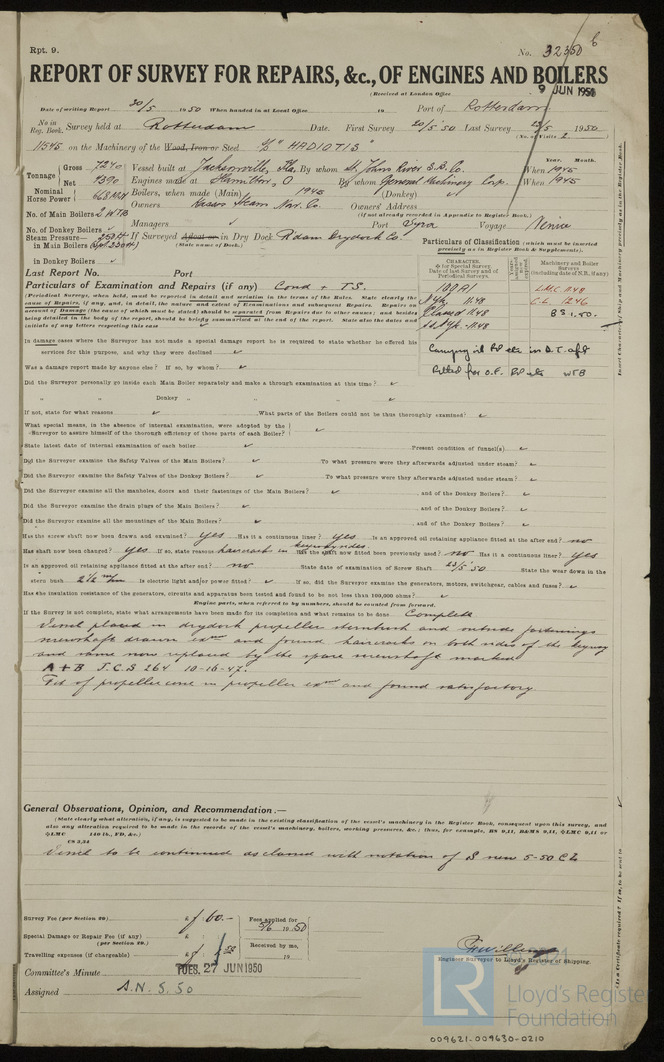 Rpt. 9.
No. 32350 b
REPORT OF SURVEY FOR REPAIRS, &c., OF ENGINES AND BOILERS
(Received at London Office 9 JUN 1950
Date of writing Report 30/5 1950 When handed in at Local Office 19 Port of Rotterdam
No in Reg. Book. Survey held at Rotterdam Date. First Survey 20/5 '50 Last Survey 23/5 1950
(No. of Visits 2 )
11545 on the Machinery of the Wood, Iron or Steel "HADIOTIS"
Tonnage Gross 7240 Net 4390
Vessel built at Jacksonville, Fla. By whom St. Johns River S.B. Co. When 1945
Year. Month.
Engines made at Hamilton, O By whom General Machinery Corp. When 1945
Nominal Horse Power
Boilers, when made (Main) 1945 (Donkey)
No. of Main Boilers 2 WTB
Owners Steam Nav. Co. Owners' Address
(if not already recorded in Appendix to Register Book.)
No. of Donkey Boilers
Managers Port Voyage Venice
Steam Pressure in Main Boilers
If Surveyed Afloat or in Dry Dock R'dam Drydock Co.
(State name of Dock.)
in Donkey Boilers
Particulars of Classification (which must be inserted precisely as in Register Book & Supplements).
Last Report No. Port
Particulars of Examination and Repairs (if any) Cond + T.S.
(Periodical Survey, when held, must be reported in detail and seriatim in the terms of the Rules. State clearly the
cause of Repairs, if any, and, in detail, the nature and extent of Examinations and subsequent Repairs. Repairs on
account of Damage (the cause of which must be stated) should be separated from Repairs due to other causes; and besides
being detailed in the body of the report, should be briefly summarised at the end of the report. State also the dates and
initials of any letters respecting this case
CHARACTER. & for Special Survey Date of last Survey and of Periodical Surveys.
Machinery and Boiler Surveys (including date of N.B., if any)
100A1
LMC 11.48
Nyk 11.48
C.L. 12.46
Classed 11.48
B.S. 1.50.
Carrying oil fuel etc in D.T. aft
fitted for O.F. fuel etc WTB
In damage cases where the Surveyor has not made a special damage report he is required to state whether he offered his
services for this purpose, and why they were declined
Was a damage report made by anyone else? If so, by whom?
Did the Surveyor personally go inside each Main Boiler separately and make a thorough examination at this time?
„ „ Donkey „ „ „
If not, state for what reasons What parts of the Boilers could not be thus thoroughly examined?
What special means, in the absence of internal examination, were adopted by the
Surveyor to assure himself of the thorough efficiency of those parts of each Boiler?
State latest date of internal examination of each boiler Present condition of funnel(s)
Did the Surveyor examine the Safety Valves of the Main Boilers? To what pressure were they afterwards adjusted under steam?
Did the Surveyor examine the Safety Valves of the Donkey Boilers? To what pressure were they afterwards adjusted under steam?
Did the Surveyor examine all the manholes, doors and their fastenings of the Main Boilers? and of the Donkey Boilers?
Did the Surveyor examine the drain plugs of the Main Boilers? and of the Donkey Boilers?
Did the Surveyor examine all the mountings of the Main Boilers? and of the Donkey Boilers?
Has the screw shaft now been drawn and examined? yes Has it a continuous liner? yes Is an approved oil retaining appliance fitted at the after end? no
Has shaft now been changed? yes If so, state reasons haircracks in keywaysides. Has the shaft now fitted been previously used? no Has it a continuous liner? yes
Is an approved oil retaining appliance fitted at the after end? no State date of examination of Screw Shaft 23/5 '50 State the wear down in the
stern bush 2½ m/m Is electric light and/or power fitted? If so, did the Surveyor examine the generators, motors, switchgear, cables and fuses?
Has the insulation resistance of the generators, circuits and apparatus been tested and found to be not less than 100,000 ohms?
Engine parts, when referred to by numbers, should be counted from forward.
If the Survey is not complete, state what arrangements have been made for its completion and what remains to be done Complete
Vessel placed in drydock propeller sternbush and outside fastenings
screwshaft drawn exd and found haircracks on both sides of the keyway
and same now replaced by the spare screwshaft marked
A + B T.C.S 264 10-16-47.
Fit of propeller cone in propeller exd and found satisfactory.
General Observations, Opinion, and Recommendation.—
(State clearly what alteration, if any, is suggested to be made in the existing classification of the vessel's machinery in the Register Book, consequent upon this survey, and
also any alteration required to be made in the records of the vessel's machinery, boilers, working pressures, &c.; thus, for example, BS 9,11, B&MS 9,11, LMC 9,11 or
LMC 140 lb., FD, &c.)
CS 3,34
Vessel to be continued as classed with notation of S new 5-50 CL
Survey Fee (per Section 29) f 60.—
Fees applied for 19 50
Special Damage or Repair Fee (if any) (per Section 29.)
Travelling expenses (if chargeable)
Received by me, 19
Engineer Surveyor to Lloyd's Register of Shipping.
Committee's Minute TUES. 27 JUN 1950
Assigned S.N. 5.50
LR
Lloyd's Register
Foundation
009621-009630-0210